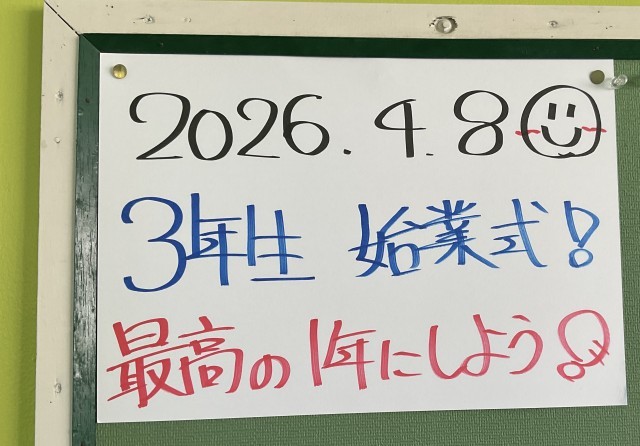 2026.4.8
3年生 始業式!
最高の1年にしよう!